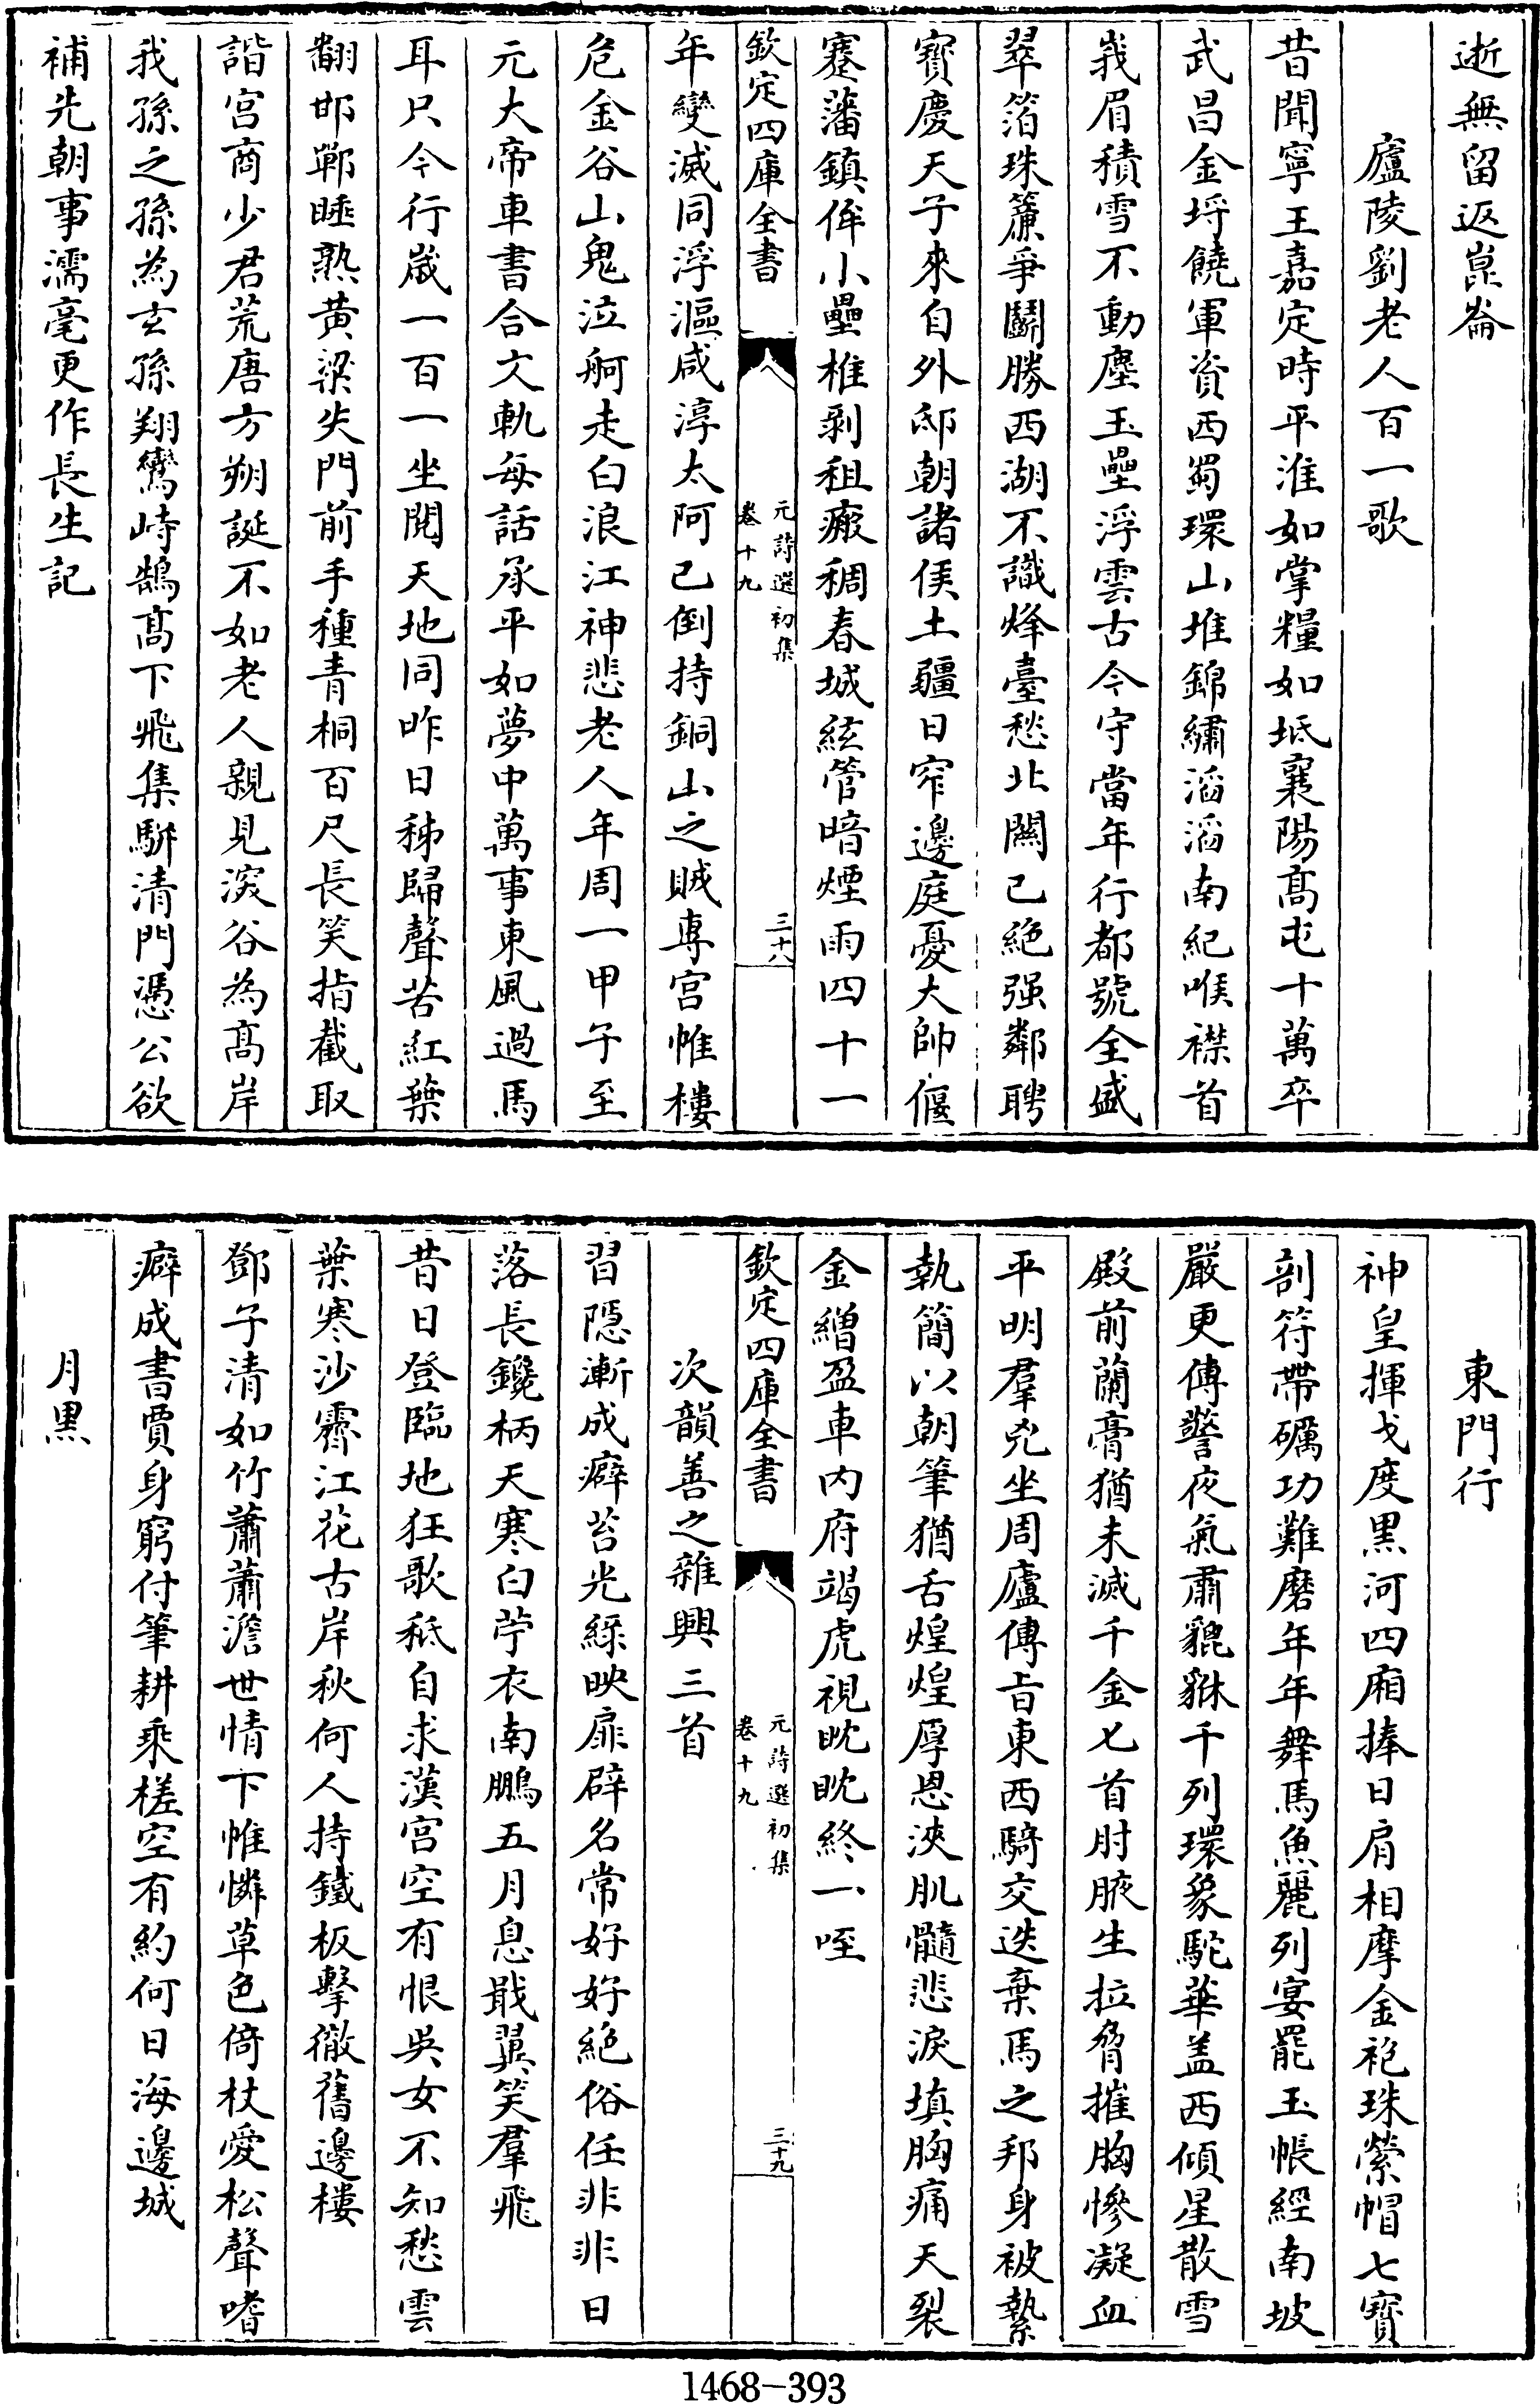 逝無留返崑崙
廬陵劉老人百一歌
昔聞寧王嘉定時平淮如掌糧如坻襄陽髙屯十萬卒
武昌金埒饒軍資西蜀環山堆錦繡滔滔南紀喉襟首
峩眉積雪不動塵玉壘浮雲古今守當年行都號全盛
翠箔珠簾爭鬭勝西湖不識烽臺愁北闗已絶强鄰聘
寳慶天子來自外邸朝諸侯土疆日窄邊庭憂大帥偃
蹇藩鎮侔小壘椎剥租瘢稠春城絃管暗煙雨四十一
欽定四庫全書
元詩選初集
卷十九
三十八
年變滅同浮漚咸淳太阿已倒持銅山之賊專宫帷樓
危金谷山鬼泣舸走白浪江神悲老人年周一甲子至
元大帝車書合文軌每話承平如夢中萬事東風過馬
耳只今行嵗一百一坐閲天地同昨日秭歸聲苦紅葉
翻邯鄲睡熟黄粱失門前手種青桐百尺長笑指截取
諧宫商少君荒唐方朔誕不如老人親見深谷為髙岸
我孫之孫為玄孫翔鸞峙鵠髙下飛集駢清門憑公欲
補先朝事濡毫更作長生記
東門行
神皇揮戈度黒河四廂捧日肩相摩金袍珠縈帽七寳
剖符帶礪功難磨年年舞馬魚麗列宴罷玉帳經南坡
嚴更傳警夜氣肅貔貅千列環象駝華盖西傾星散雪
殿前蘭膏猶未滅千金匕首肘腋生拉脅摧胸慘凝血
平明羣兇坐周廬傳旨東西騎交迭棄馬之邦身被縶
執簡以朝筆猶舌煌煌厚恩浹肌髓悲淚填胸痛天裂
金繒盈車内府竭虎視眈眈終一咥
欽定四庫全書
元詩選初集
卷十九
三十九
次韻善之雜興三首
習隱漸成癖苔光綠映扉辟名常好好絶俗任非非日
落長鑱柄天寒白苧衣南鵬五月息戢翼笑羣飛
昔日登臨地狂歌秪自求漢宫空有恨吳女不知愁雲
葉寒沙霽江花古岸秋何人持鐵板擊徹舊邊樓
鄧子清如竹蕭蕭澹世情下帷憐草色倚杖愛松聲嗜
癖成書賈身窮付筆耕乘槎空有約何日海邊城
月黒
1468-393